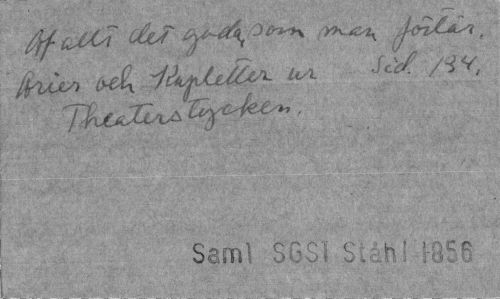 Af allt det goda, som man förtär.
Arier och Kupletter ur Sid. 134.
Theaterstycken.
Saml SGS1 Ståhl 1856